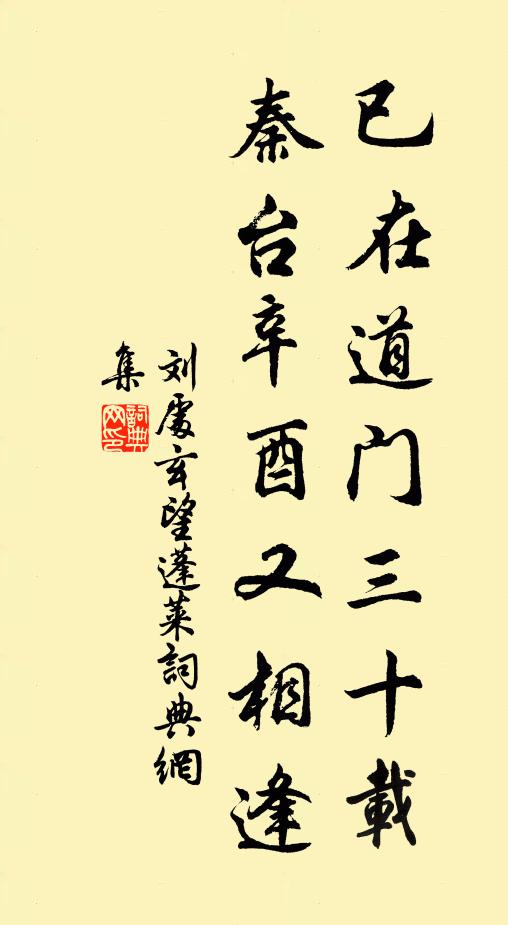 已在道门三十載
秦台辛酉又相逢
刘處玄望蓬莱詞典網
集
詞典网印